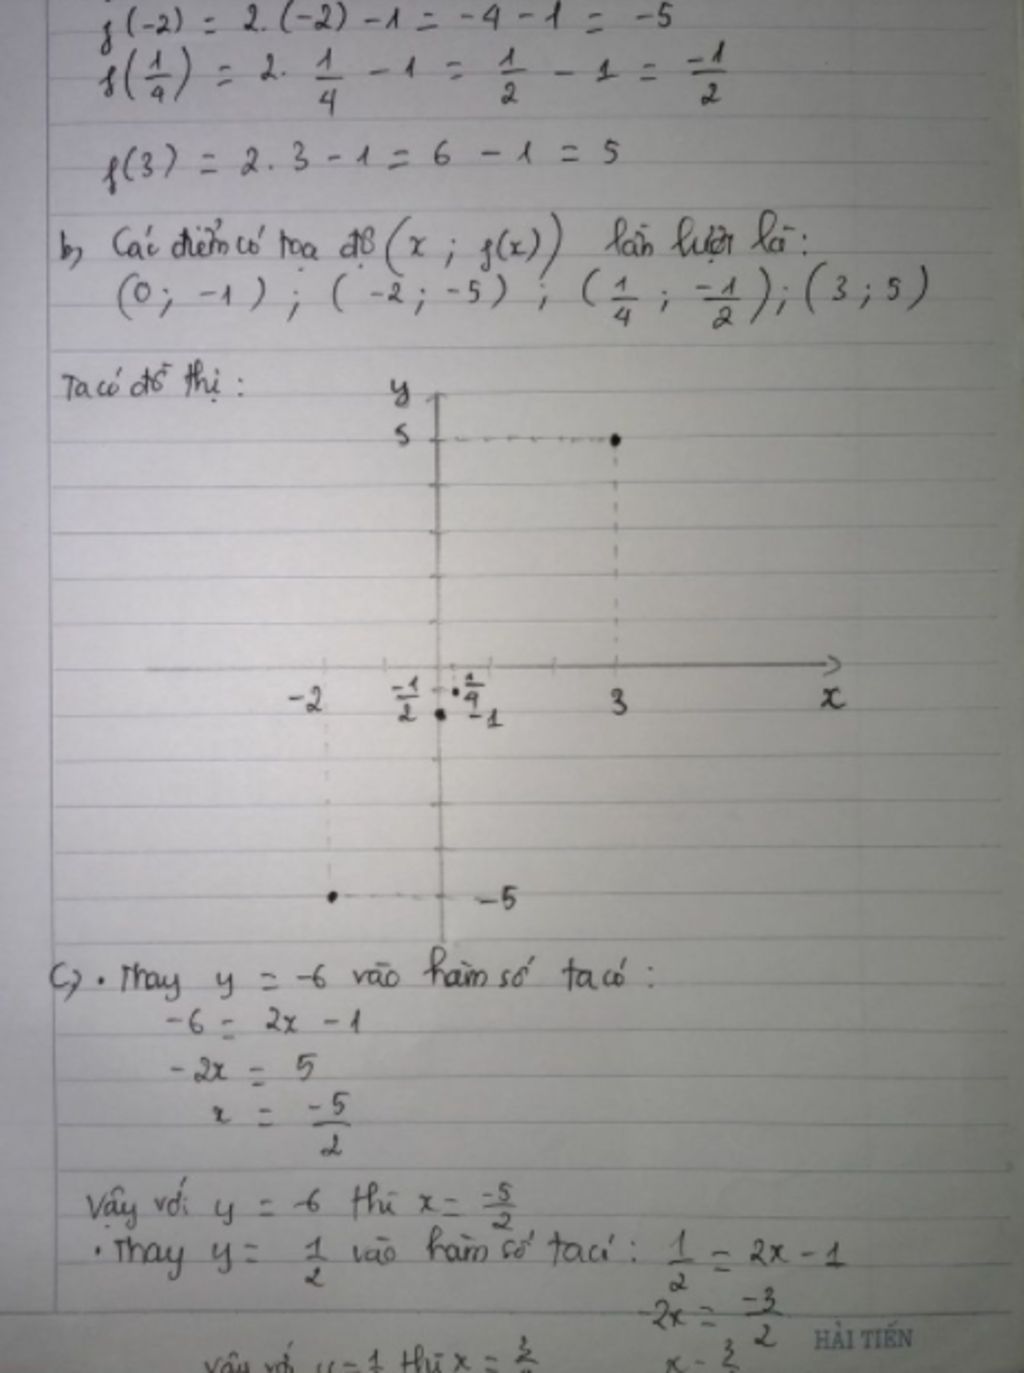 f(-2) = 2.(-2) - 1 = -4 - 1 = -5
f(1/4) = 2. 1/4 - 1 = 1/2 - 1 = -1/2
f(3) = 2. 3 - 1 = 6 - 1 = 5
b, Các điểm có tọa độ (x ; f(x)) lần lượt là:
(0 ; -1) ; (-2 ; -5) ; (1/4 ; -1/2) ; (3 ; 5)
Ta có đồ thị :
y
5
-2 -1/2 1/4 3 x
-1
-5
c, . Thay y = -6 vào hàm số ta có :
-6 = 2x - 1
-2x = 5
x = -5/2
Vậy với y = -6 thì x = -5/2
. Thay y = 1/2 vào hàm số ta có : 1/2 = 2x - 1
-2x = -3/2
HẢI TIẾN